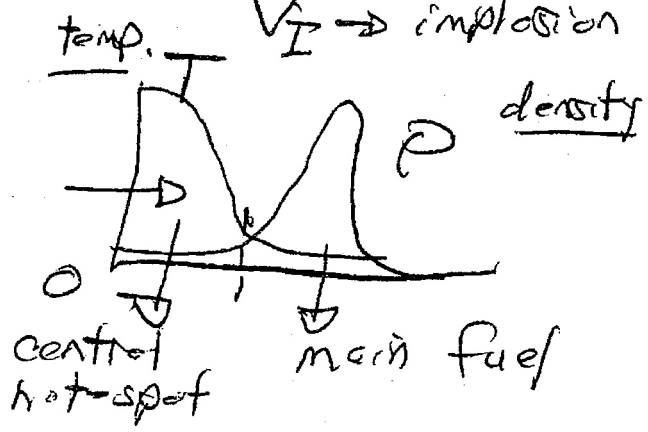 V_I → implosion
temp.
T
density
ρ
0
central
hot-spot
main fuel